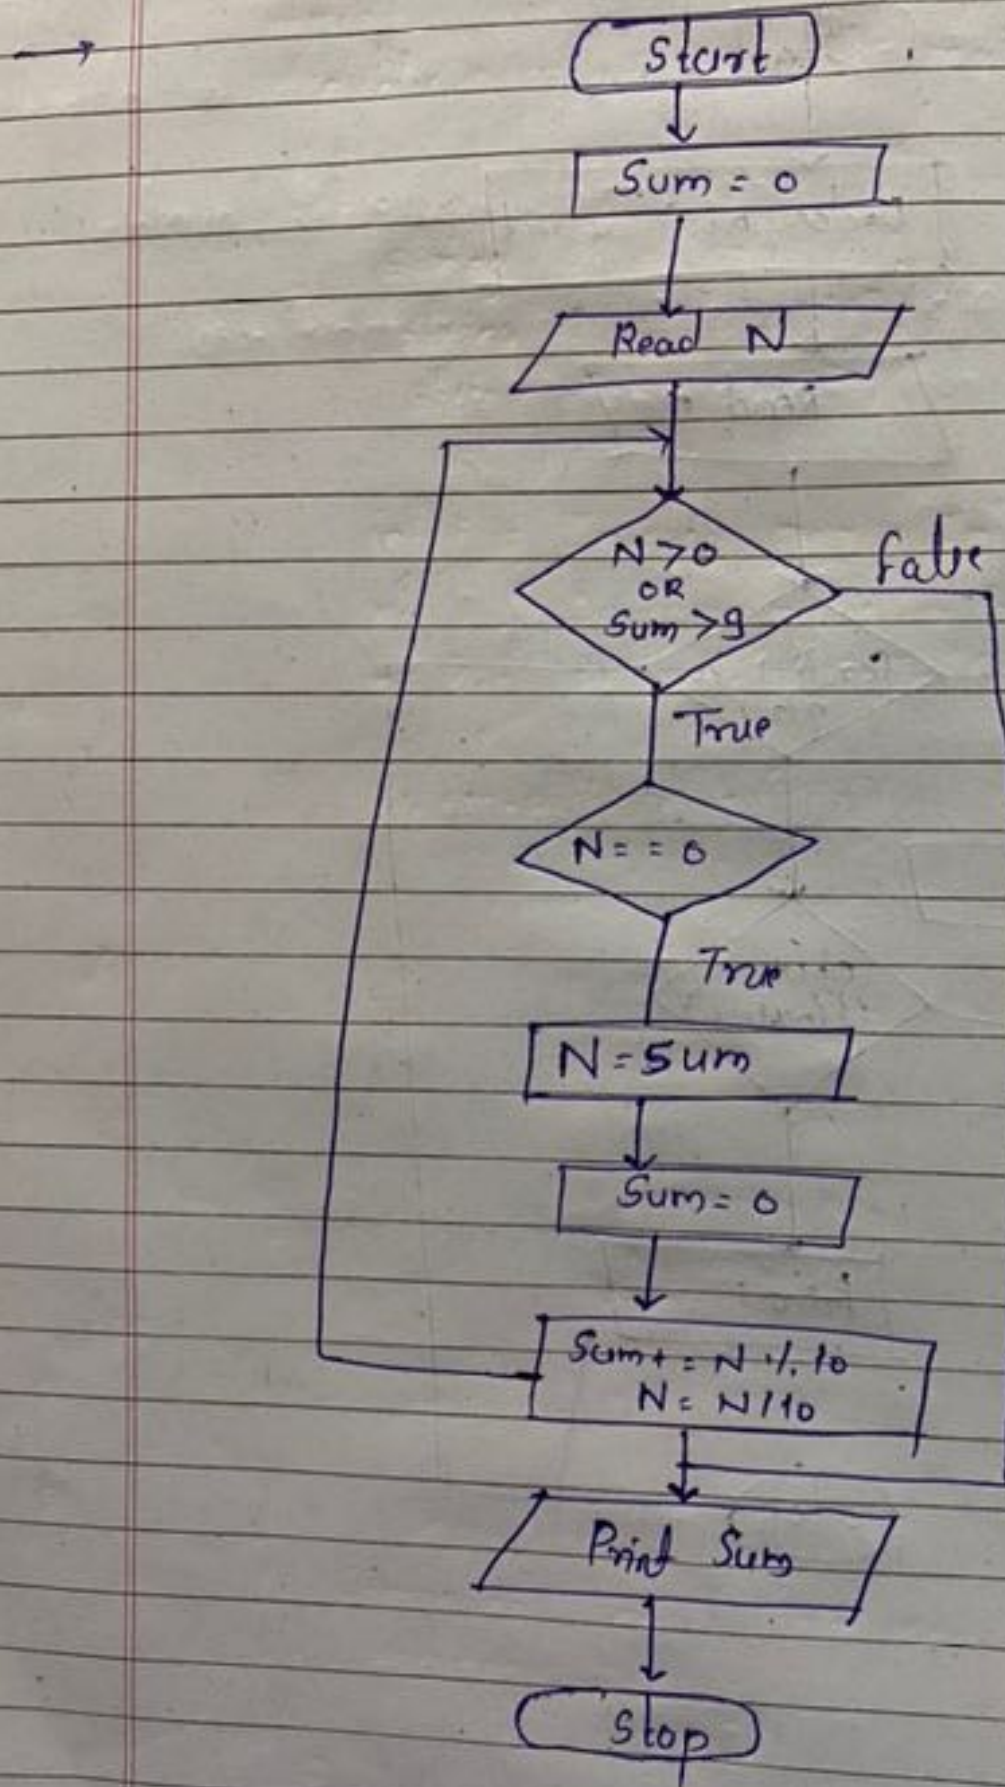 Start
Sum = 0
Read N
N > 0
OR
Sum > 9
False
True
N = = 0
True
N = Sum
Sum = 0
Sum + = N % 10
N = N / 10
Print Sum
Stop